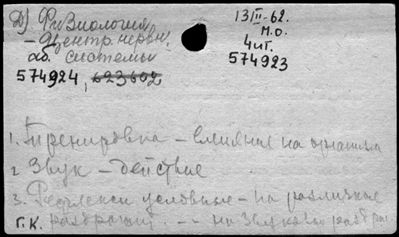 Ф. Физиология
- центр. нервн.
об. системы
574924, 623602
13/III-62.
М.О.
4иг.
574923
1. Тренировка - влияние на организм
2 Звук - действие
3. Рефлексы условные - на различные
Г.К. раздражит. -- на звуковые раздра